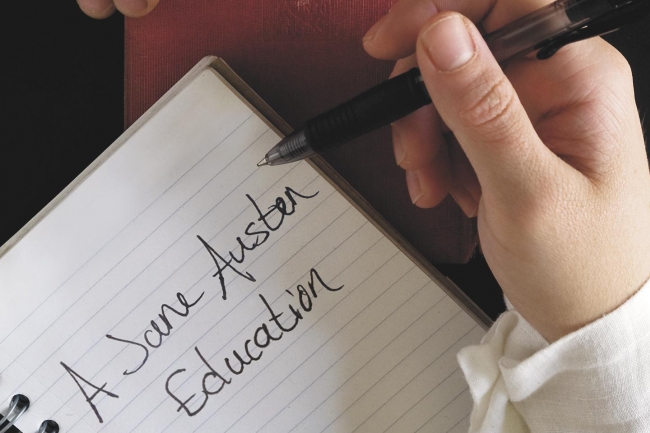 A Jane Austen
Education